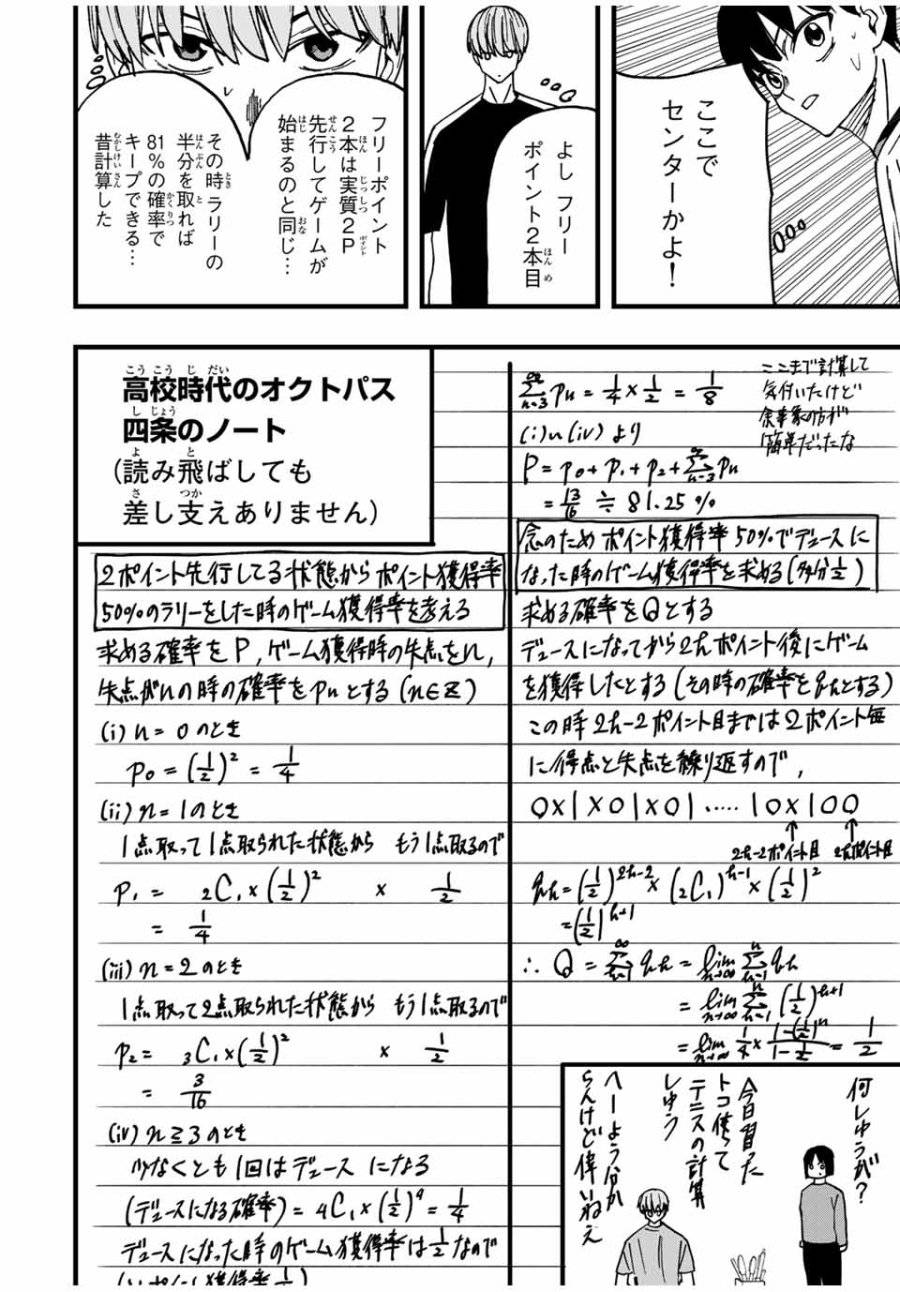 ここで
センターかよ！
よし フリー
ポイント2本目
フリーポイント
2本は実質2P
先行してゲームが
始まるのと同じ…
その時 ラリーの
半分を取れば
81%の確率で
キープできる…
昔計算した
高校時代のオクトパス
四条のノート
(読み飛ばしても
差し支えありません)
2ポイント先行してる状態からポイント獲得率
50%のラリーをした時のゲーム獲得率を考える
求める確率をP, ゲーム獲得時の失点をn,
失点がnの時の確率をpnとする(n∈Z)
(i) n = 0 のとき
p0 = (1/2)^2 = 1/4
(ii) n = 1 のとき
1点取って1点取られた状態から もう1点取るので
p1 = 2C1 × (1/2)^2 × 1/2
= 1/4
(iii) n = 2 のとき
1点取って2点取られた状態から もう1点取るので
p2 = 3C1 × (1/2)^2 × 1/2
= 3/16
(iv) n ≧ 3 のとき
少なくとも1回はデュースになる
(デュースになる確率) = 4C1 × (1/2)^4 = 1/4
デュースになった時のゲーム獲得率は1/2なので
∞Σn=3 pn = 1/4 × 1/2 = 1/8
ここまで計算して
気付いたけど
余事象の方が
簡単だったな
(i)~(iv) より
P = p0 + p1 + p2 + ∞Σn=3 pn
= 13/16 ≒ 81.25%
念のため ポイント獲得率50%でデュースに
なった時のゲーム獲得率を求める(多分1/2)
求める確率をQとする
デュースになってから2kポイント後にゲーム
を獲得したとする(その時の確率をqkとする)
この時2k-2ポイント目までは2ポイント毎
に得点と失点を繰り返すので,
0×1×01×01 ····· 10×100
2k-2ポイント目 2kポイント目
qk = (1/2)^2k-2 × (2C1)^k-1 × (1/2)^2
= (1/2)^k+1
∴ Q = ∞Σk=1 qk = lim n→∞ nΣk=1 qk
= lim n→∞ nΣk=1 (1/2)^k+1
= lim n→∞ 1/4 × 1-(1/2)^n / 1-1/2 = 1/2
何しゅうが?
今日習った
トコ使って
テニスの計算
しゅう
へーよう分か
らんけど偉いねえ